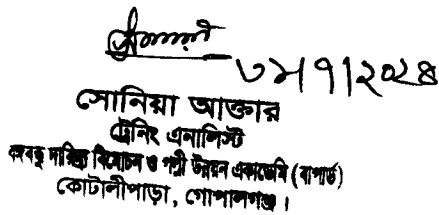 ৩১।৭।২০২৪
সোনিয়া আক্তার
ট্রেনিং এনালিস্ট
বঙ্গবন্ধু দারিদ্র্য বিমোচন ও পল্লী উন্নয়ন একাডেমি (বাপার্ড)
কোটালীপাড়া, গোপালগঞ্জ।